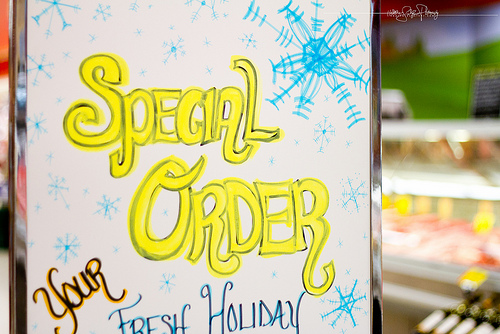 SPECIAL
ORDER
YOUR
FRESH HOLIDAY